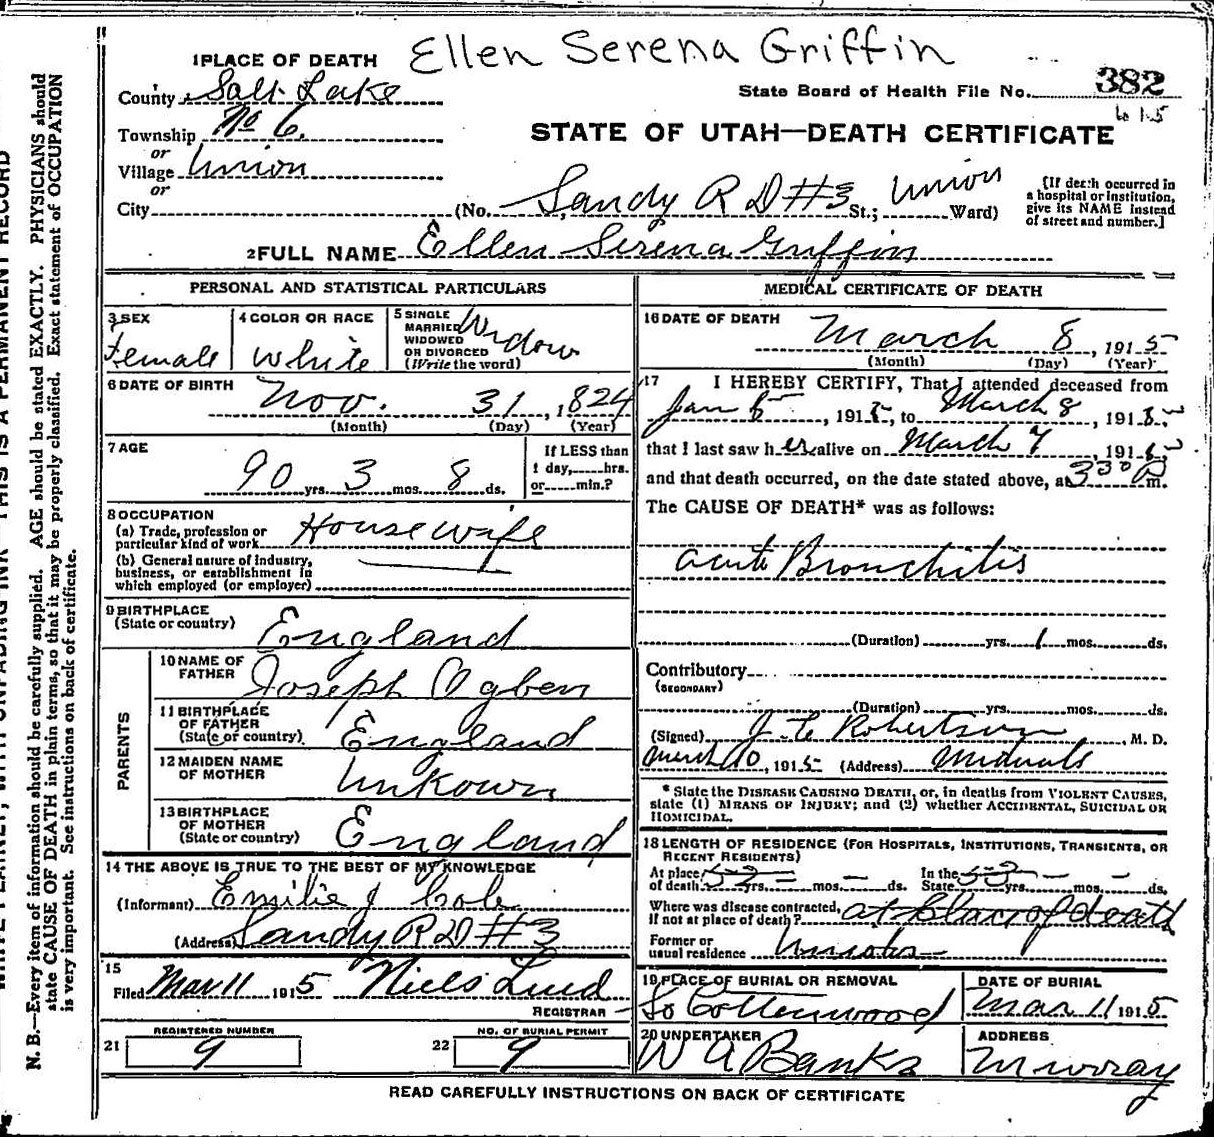 Ellen Serena Griffin
1 PLACE OF DEATH
County Salt Lake
State Board of Health File No. 382
Township No 6.
STATE OF UTAH—DEATH CERTIFICATE
or
Village Union
or
City (No. Sandy R D #3 St.; Union Ward)
[If death occurred in
a hospital or institution,
give its NAME instead
of street and number.]
2 FULL NAME Ellen Serena Griffin
PERSONAL AND STATISTICAL PARTICULARS
3 SEX
Female
4 COLOR OR RACE
White
5 SINGLE
MARRIED
WIDOWED
OR DIVORCED
(Write the word)
Widow
6 DATE OF BIRTH
Nov. 31, 1824
(Month) (Day) (Year)
7 AGE
90 yrs. 3 mos. 8 ds.
If LESS than
1 day, hrs.
or min.?
8 OCCUPATION
(a) Trade, profession or
particular kind of work Housewife
(b) General nature of industry,
business, or establishment in
which employed (or employer)
9 BIRTHPLACE
(State or country) England
PARENTS
10 NAME OF
FATHER Joseph Ogben
11 BIRTHPLACE
OF FATHER
(State or country) England
12 MAIDEN NAME
OF MOTHER Unkown
13 BIRTHPLACE
OF MOTHER
(State or country) England
14 THE ABOVE IS TRUE TO THE BEST OF MY KNOWLEDGE
(Informant) Emilie J Cole
(Address) Sandy R D #3
15
Filed Mar 11 1915 Niels Lind
REGISTRAR
REGISTERED NUMBER
21 9
NO. OF BURIAL PERMIT
22 9
MEDICAL CERTIFICATE OF DEATH
16 DATE OF DEATH
March 8, 1915
(Month) (Day) (Year)
17 I HEREBY CERTIFY, That I attended deceased from
Jan 5, 1915, to March 8, 1915,
that I last saw her alive on March 7, 1915
and that death occurred, on the date stated above, at 3 30 P m.
The CAUSE OF DEATH* was as follows:
Acute Bronchitis
(Duration) yrs. 1 mos. ds.
Contributory
(SECONDARY)
(Duration) yrs. mos. ds.
(Signed) Robertson, M. D.
March 10, 1915 (Address) Midvale
* State the DISEASE CAUSING DEATH, or, in deaths from VIOLENT CAUSES,
state (1) MEANS OF INJURY; and (2) whether ACCIDENTAL, SUICIDAL OR
HOMICIDAL.
18 LENGTH OF RESIDENCE (FOR HOSPITALS, INSTITUTIONS, TRANSIENTS, OR
RECENT RESIDENTS)
At place In the
of death 53 yrs. — mos. — ds. State 53 yrs. — mos. — ds.
Where was disease contracted,
if not at place of death? at place of death
Former or
usual residence
19 PLACE OF BURIAL OR REMOVAL
So Cottenwood
DATE OF BURIAL
Mar 11 1915
20 UNDERTAKER
W A Banks
ADDRESS
Murray
READ CAREFULLY INSTRUCTIONS ON BACK OF CERTIFICATE
N. B.—Every item of information should be carefully supplied. AGE should be stated EXACTLY. PHYSICIANS should
state CAUSE OF DEATH in plain terms, so that it may be properly classified. Exact statement of OCCUPATION
is very important. See instructions on back of certificate.